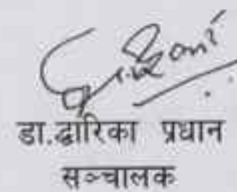 डा.द्वारिका प्रधान
सञ्चालक